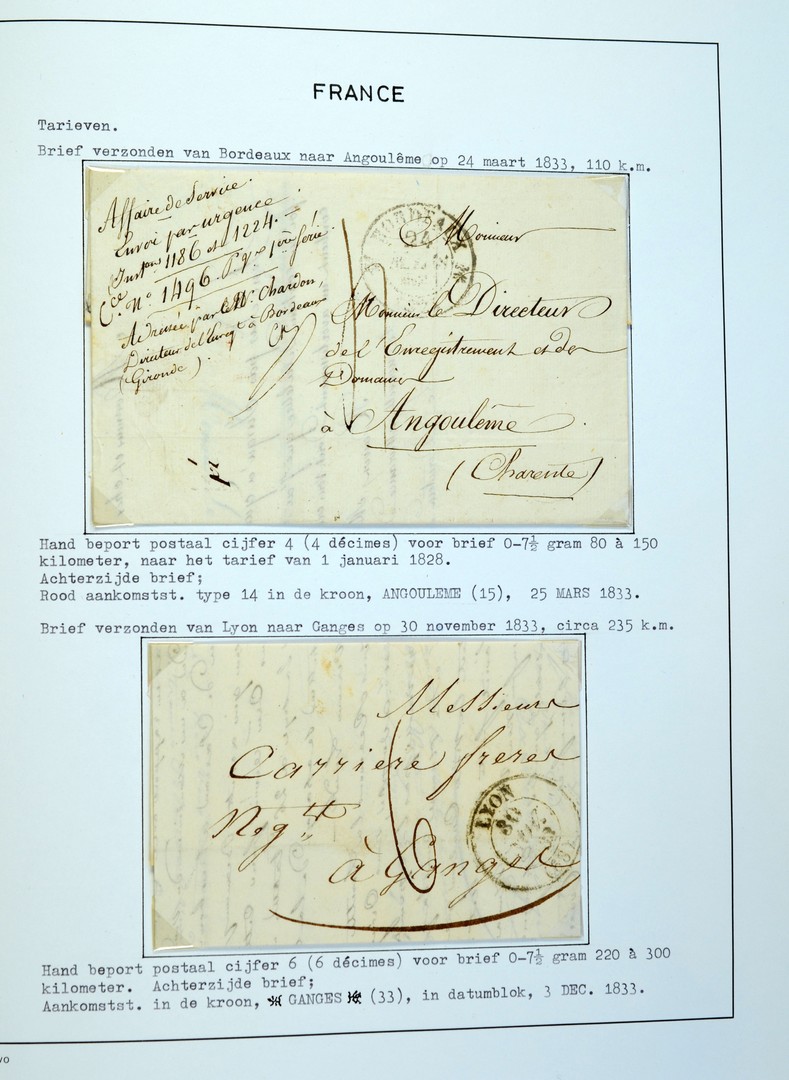 FRANCE
Tarieven.
Brief verzonden van Bordeaux naar Angoulême op 24 maart 1833, 110 k.m.
Affaire de Service.
Envoi par urgence
1186 et 1224.
C.re N.o 1496.
Adressée par M.r Chardon,
Directeur de l'Enreg.t à Bordeaux
(Gironde).
BORDEAUX
24
A Monsieur
Monsieur le Directeur
de l'Enregistrement et des
Domaines
à Angoulême
(Charente)
Hand beport postaal cijfer 4 (4 décimes) voor brief 0-7½ gram 80 à 150
kilometer, naar het tarief van 1 januari 1828.
Achterzijde brief;
Rood aankomstst. type 14 in de kroon, ANGOULEME (15), 25 MARS 1833.
Brief verzonden van Lyon naar Ganges op 30 november 1833, circa 235 k.m.
Messieurs
Carrière frères
Neg.ts
à Ganges
6
LYON
30
Hand beport postaal cijfer 6 (6 décimes) voor brief 0-7½ gram 220 à 300
kilometer. Achterzijde brief;
Aankomstst. in de kroon, GANGES (33), in datumblok, 3 DEC. 1833.